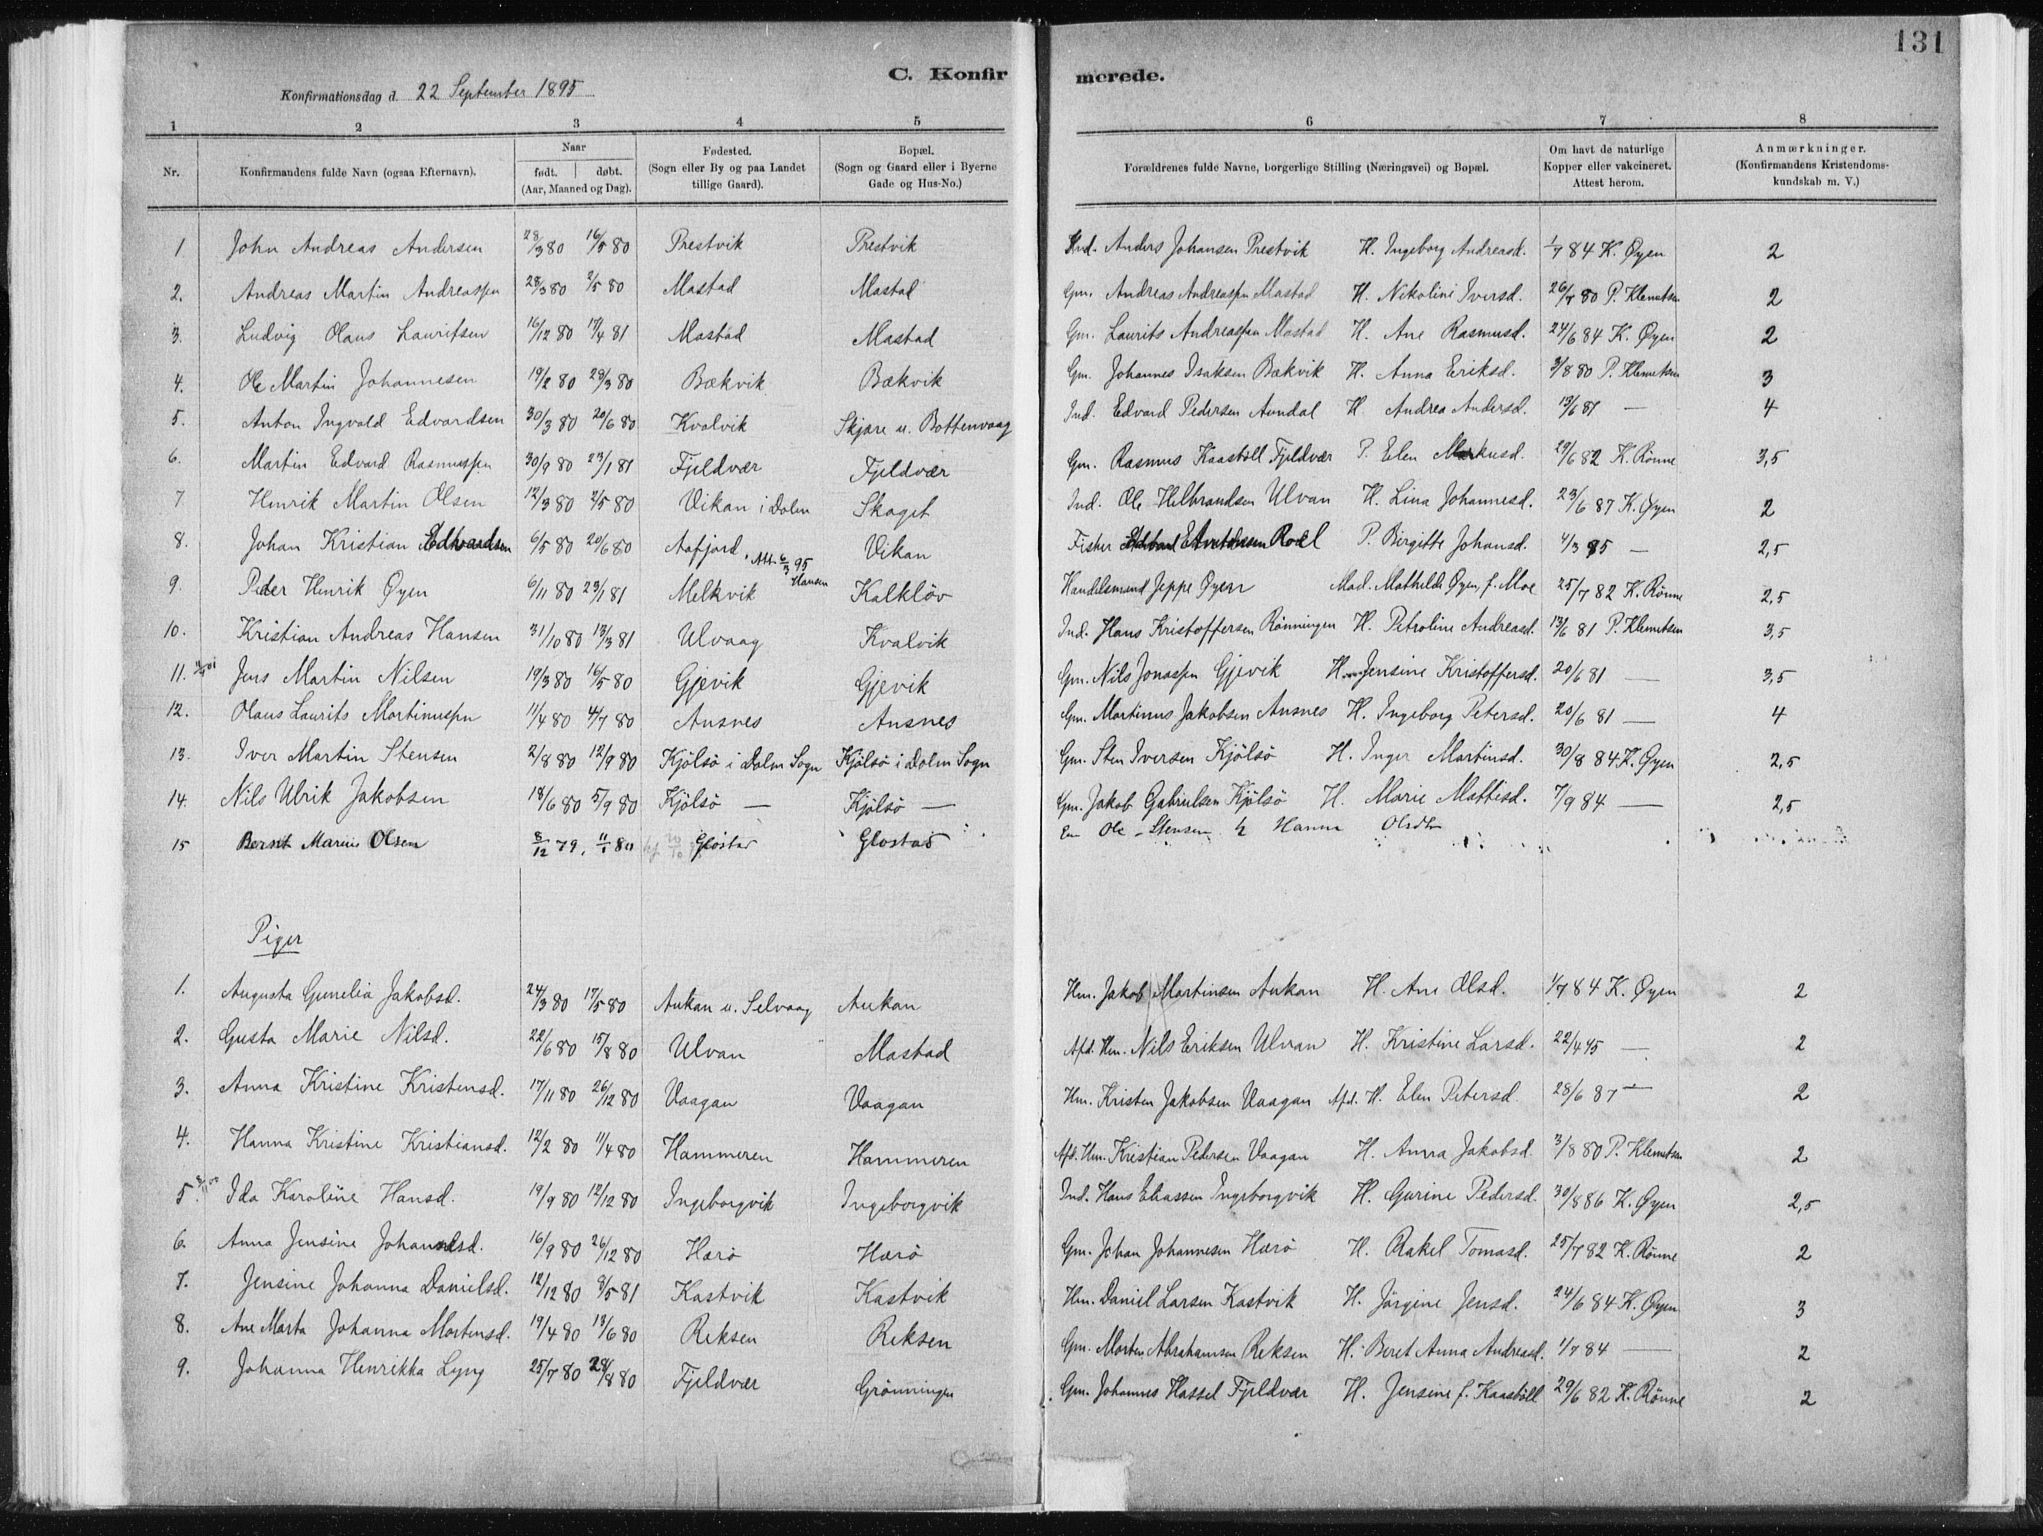 131
C. Konfirmerede.
Konfirmationsdag d. 22 September 1895
1 2 3 4 5 6 7 8
Nr. Konfirmandens fulde Navn (ogsaa Efternavn). Naar født. døbt. (Aar, Maaned og Dag). Fødested. (Sogn eller By og paa Landet tillige Gaard). Bopæl. (Sogn og Gaard eller i Byerne Gade og Hus-No.) Forældrenes fulde Navne, borgerlige Stilling (Næringsvei) og Bopæl. Om havt de naturlige Kopper eller vakcineret. Attest herom. Anmærkninger. (Konfirmandens Kristendomskundskab m. V.)
1 John Andreas Andersen 28/3 80 16/5 80 Prestvik Prestvik Ind. Anders Johansen Prestvik H. Ingeborg Andreasd. 1/7 84 K. Øyen 2
2. Andreas Martin Andreassen 28/3 80 2/5 80 Mastad Mastad Gm. Andreas Andreassen Mastad H. Nikoline Iversd. 26/7 80 P. Klemetsen 2
3. Ludvig Olaus Lauritsen 16/12 80 17/4 81 Mastad Mastad Gm. Laurits Andreassen Mastad H. Ane Rasmusd. 24/6 84 K. Øyen 2
4. Ole Martin Johannesen 19/2 80 29/3 80 Bækvik Bækvik Gm. Johannes Isaksen Bækvik H. Anna Eriksd. 3/8 80 P. Klemetsen 3
5. Anton Ingvald Edvardsen 30/3 80 20/6 80 Kvalvik Skjære u. Bottenvaag Ind. Edvard Pedersen Aundal H. Andrea Andersd. 13/6 81 — 4
6. Martin Edvard Rasmussen 30/9 80 23/1 81 Fjeldvær Fjeldvær Gm. Rasmus Kaasböll Fjeldvær P. Elen Markusd. 29/6 82 K. Rönne 3,5
7 Henrik Martin Olsen 12/3 80 2/5 80 Vikan i Dolm Skaget Ind. Ole Helbrandsen Ulvan H. Lina Johannesd. 23/6 87 K. Øyen 2
8. Johan Kristian Edvardsen 6/5 80 20/6 80 Aafjord, Att. 6/3 95 Hansen Vikan Fisker Roel P. Birgitte Johansd. 4/3 95 — 2,5
9. Peder Henrik Øyen 6/11 80 23/1 81 Melkvik Kalklöv Handelsmand Jeppe Øyen Mad. Mathilde Øyen, f. Moe 25/7 82 K. Rönne 2,5
10. Kristian Andreas Hansen 31/10 80 13/3 81 Ulvaag Kvalvik Ind. Hans Kristoffersen Rönningen H. Petroline Andreasd. 13/6 81 P. Klemetsen 3,5
11. Jens Martin Nilsen 19/3 80 16/5 80 Gjevik Gjevik Gm. Nils Jonassen Gjevik H. Jensine Kristoffersd. 20/6 81 — 3,5
12. Olaus Laurits Martinussen 11/4 80 4/7 80 Ansnes Ansnes Gm. Martinus Jakobsen Ansnes H. Ingeborg Petersd. 20/6 81 — 4
13. Iver Martin Stensen 2/8 80 12/9 80 Kjölsö i Dolm Sogn Kjölsö i Dolm Sogn Gm. Sten Iversen Kjölsö H. Inger Martinsd. 30/8 84 K. Øyen 2,5
14. Nils Ulrik Jakobsen 18/6 80 5/9 80 Kjölsö — Kjölsö — Gm. Jakob Gabrielsen Kjölsö H. Marie Mattisd. 7/9 84 — 2,5
15 Bernt Marius Olsen 8/12 79. 11/1 80 Glöstad Glostad Em Ole Stensen H. Hanna Olsdtr
Piger
1. Augusta Gunelia Jakobsd. 24/3 80 17/5 80 Aukan u. Selvaag Aukan Hm. Jakob Martinsen Aukan H. Ane Olsd. 1/7 84 K. Øyen 2
2. Gusta Marie Nilsd. 22/6 80 15/8 80 Ulvan Mastad Afd. Hm. Nils Eriksen Ulvan H. Kristine Larsd. 22/4 95 — 2
3. Anna Kristine Kristensd. 17/11 80 26/12 80 Vaagan Vaagan Hm. Kristen Jakobsen Vaagan Afd. H. Elen Petersd. 28/6 87 — 2
4. Hanna Kristine Kristiansd. 12/2 80 11/4 80 Hammeren Hammeren Afd. Hm. Kristian Pedersen Vaagan H. Anna Jakobsd. 3/8 80 P. Klemetsen 2
5. Ida Karoline Hansd. 19/9 80 12/12 80 Ingeborgvik Ingeborgvik Ind. Hans Eliassen Ingeborgvik H. Gurine Pedersd. 30/8 86 K. Øyen 2,5
6. Anna Jensine Johansd. 16/9 80 26/12 80 Hærö Hærö Gm. Johan Johannesen Hærö H. Rakel Tomasd. 25/7 82 K. Rönne 2
7. Jensine Johanna Danielsd. 12/12 80 8/5 81 Kastvik Kastvik Hm. Daniel Larsen Kastvik H. Jörgine Jensd. 24/6 84 K. Øyen 3
8. Ane Marta Johanna Mortensd. 19/4 80 13/6 80 Reksen Reksen Gm. Morten Abrahamsen Reksen H. Beret Anna Andreasd. 1/7 84 — 2
9. Johanna Henrikka Lyng 25/7 80 28/8 80 Fjeldvær Grönningen Gm. Johannes Hassel Fjeldvær H. Jensine f. Kaasböll 29/6 82 K. Rönne 2